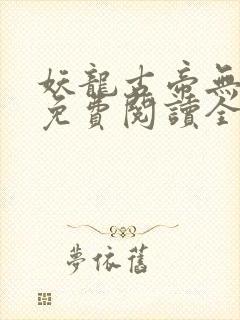 妖龍古帝無
免費閱讀全
夢依舊